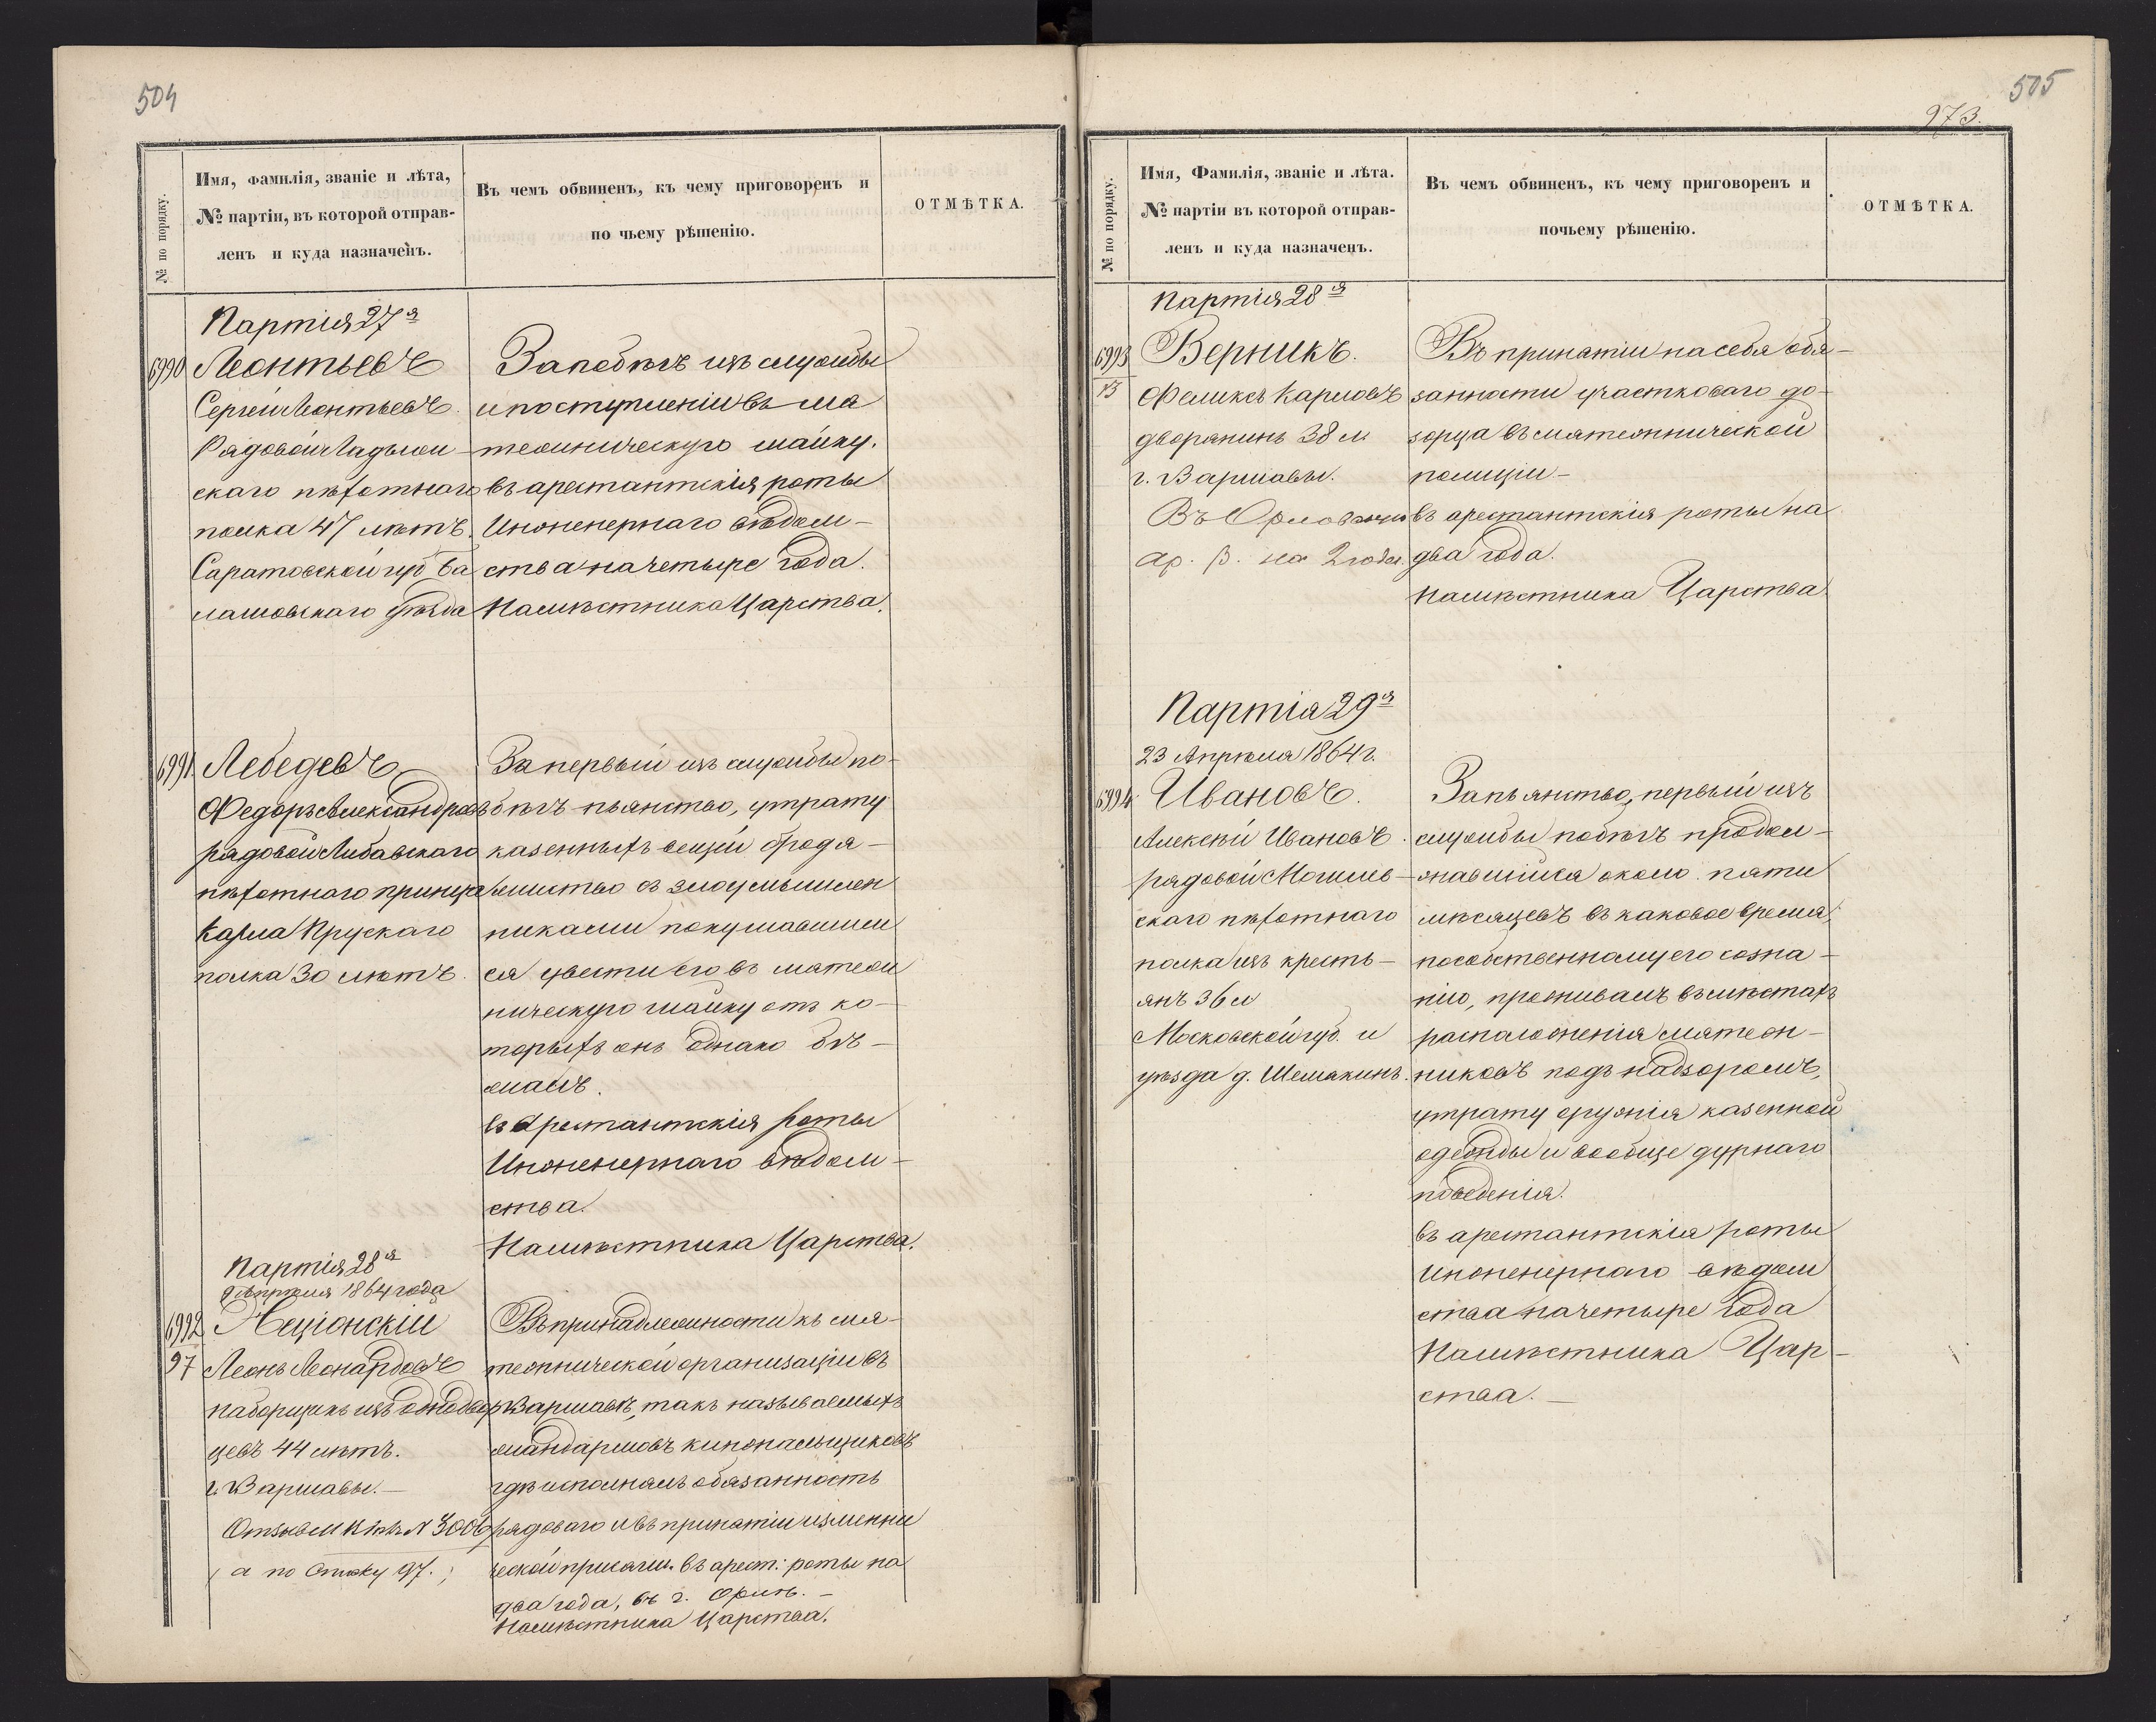 504
№ по порядку.
Имя, фамилія, званіе и лѣта,
№ партіи, въ которой отправ-
ленъ и куда назначенъ.
Въ чемъ обвиненъ, къ чему приговоренъ и
по чьему рѣшенію.
ОТМѢТКА.
Партія 27я
6990
Леонтьевъ
Сергѣй Леонтьевъ
Рядовой Ладож-
скаго пѣхотнаго
полка 47 лѣтъ.
Саратовской губ Ба
лашовскаго уѣзда
За побѣгъ изъ службы
и поступленіи въ мя
тежническую шайку.
въ арестантскія роты
Инженернаго вѣдом-
ства на четыре года.
Намѣстника Царства.
6991
Лебедевъ
Федоръ Александровъ
рядовой Либавскаго
пѣхотнаго принца
Карла Прускаго
полка 30 лѣтъ.
За первый изъ службы по-
бѣгъ пьянство, утрату
казенныхъ вещей бродя-
жничество съ злоумышлен
никами покушавшими
ся увести его въ мятежн
ническую шайку отъ ко-
торыхъ онъ однако бѣ-
жалъ.
въ Арестантскія роты
Инженернаго вѣдом-
ства.
Намѣстника Царства.
Партія 28я
9 Апрѣля 1864 года
6992
97
Леонъ Леонардовъ
наборщикъ изъ однодвор
цевъ 44 лѣтъ.
г. Варшавы.—
а по списку 97.
Въ принадлежности къ мя-
тежнической организаціи въ
Варшавѣ, такъ называемыхъ
жандармовъ кинжальщиковъ
гдѣ исполнялъ обязанность
рядоваго и въ принятіи изменни
ческой присяги. въ арест: роты на
два года, въ г. Орлѣ.—
Намѣстника Царства.
505
973.
№ по порядку.
Имя, Фамилія, званіе и лѣта.
№ партіи въ которой отправ-
ленъ и куда назначенъ.
Въ чемъ обвиненъ, къ чему приговоренъ и
почьему рѣшенію.
ОТМѢТКА.
Партія 28я
6993
13
Верникъ.
Феликсъ Карловъ
дворянинъ 38 л.
г. Варшавы.
ар. р. на 2 года.
Въ принятіи на себя обя-
занности участковаго до-
зорца въ мятежнической
полиціи—
въ арестантскія роты на
два года.
Намѣстника Царства
Партія 29я
23 Апрѣля 1864 г.
6994
Ивановъ.
Алексѣй Ивановъ.
рядовой Могилев-
скаго пѣхотнаго
полка изъ кресть-
янъ 36 л
Московской губ. и
уѣзда д. Шемякинъ.
За пьянство, первый изъ
службы побѣгъ продол-
жавшійся около пяти
мѣсяцевъ въ каковое время,
пособственному его созна-
нію, проживалъ въ мѣстахъ
расположенія мятеж-
никовъ подъ надзоромъ,
утрату оружія казенной
одежды и вообще дурнаго
поведенія.
въ арестантскія роты
инженернаго вѣдом
ства на четыре года
Намѣстника Цар-
ства.—